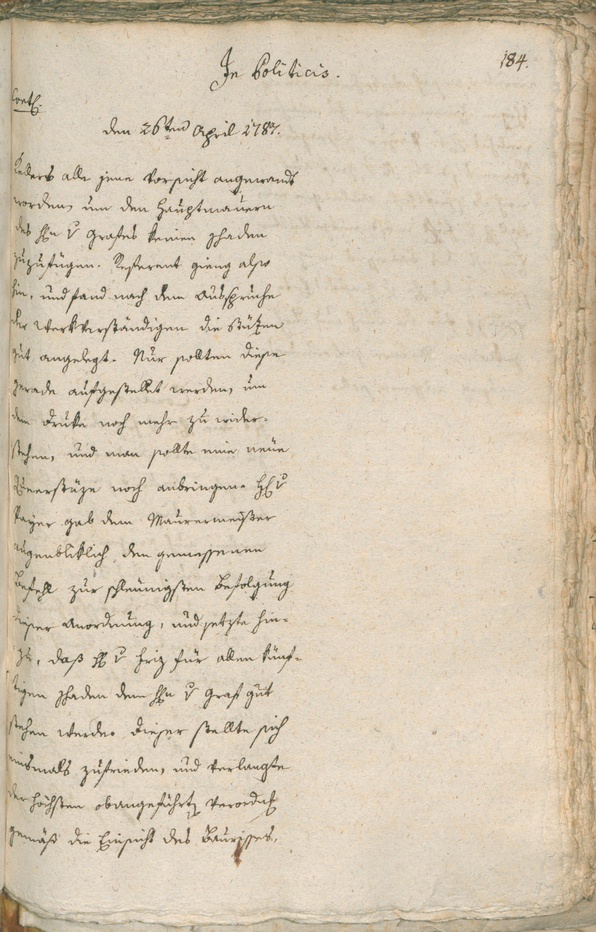 In Politicis.
184.
Cont.
den 26ten April 1787.
Kellers alle jene Vorsicht angewandt
worden, um den Hauptmauern
des Hn v Grafes keinen Schaden
zuzufügen. Referent gieng also
hin, und fand nach dem Ausspruche
der Werkverständigen die Stützen
gut angelegt. Nur sollten diese
gerade aufgestellet werden, um
dem Druke noch mehr zu wider-
stehen, und man sollte eine neue
Querstüze noch anbringen. H v
Payer gab dem Maurermeister
augenbliklich den gemessenen
Befehl zur schleunigsten Befolgung
dieser Anordnung, und setzte hin-
zu, daß H v Hriz für allen künf-
tigen Schaden dem Hn v Graf gut
stehen werde. Dieser stellte sich
zufrieden, und verlangte
der höchsten obangeführt Verordn
gemäß die Einsicht des Baurisses,